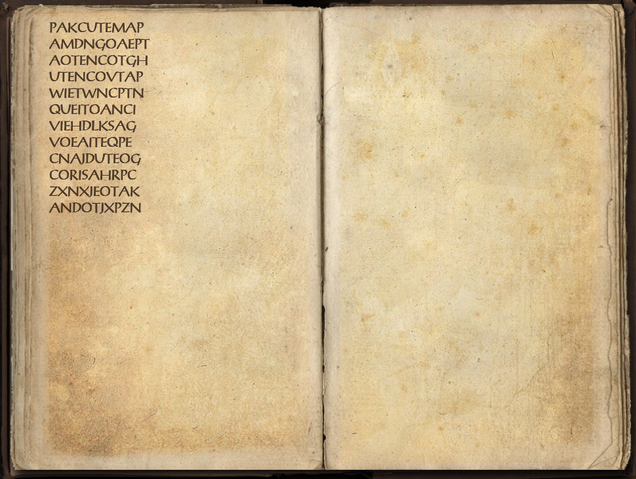 PAKCUTEMAP
AMDNGOAEPT
AOTENCOTGH
UTENCOVTAP
WIETWNCPTN
QUEITOANCI
VIEHDLKSAG
VOEAITEQPE
CNAJDUTEOG
CORISAHRPC
ZXNXJEOTAK
ANDOTJXPZN